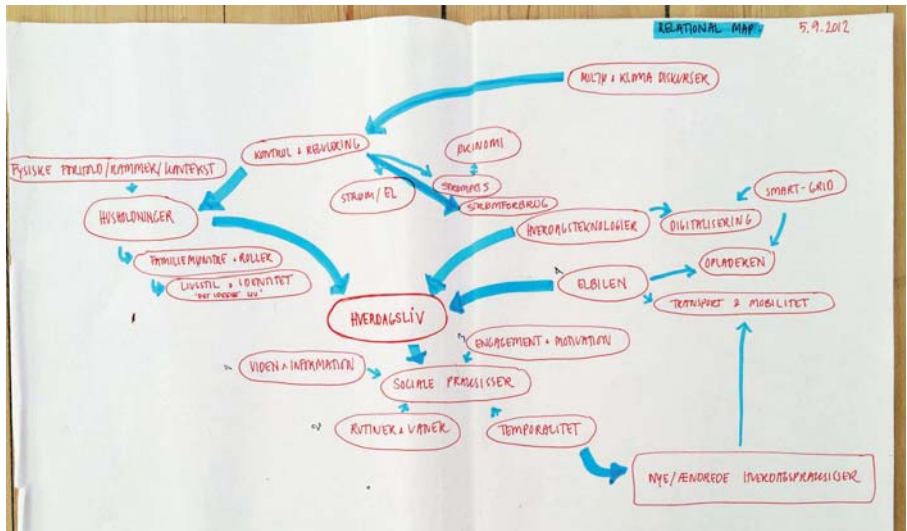 RELATIONAL MAP.
5.9.2012
MILJØ & KLIMA DISKURSER
KONTROL & REGULERING
ØKONOMI
FYSISKE FORHOLD/RAMMER/KONTEKST
STRØM/EL
STRØMPRIS
STRØMFORBRUG
SMART-GRID
HUSHOLDNINGER
HVERDAGSTEKNOLOGIER
DIGITALISERING
FAMILIEMØNSTRE & ROLLER
OPLADEREN
LIVSSTIL & IDENTITET
"DET LODDE LIV"
ELBILEN
TRANSPORT & MOBILITET
HVERDAGSLIV
ENGAGEMENT & MOTIVATION
VIDEN & INFORMATION
SOCIALE PRAKSISSER
RUTINER & VANER
TEMPORALITET
NYE/ÆNDREDE HVERDAGSPRAKSISSER